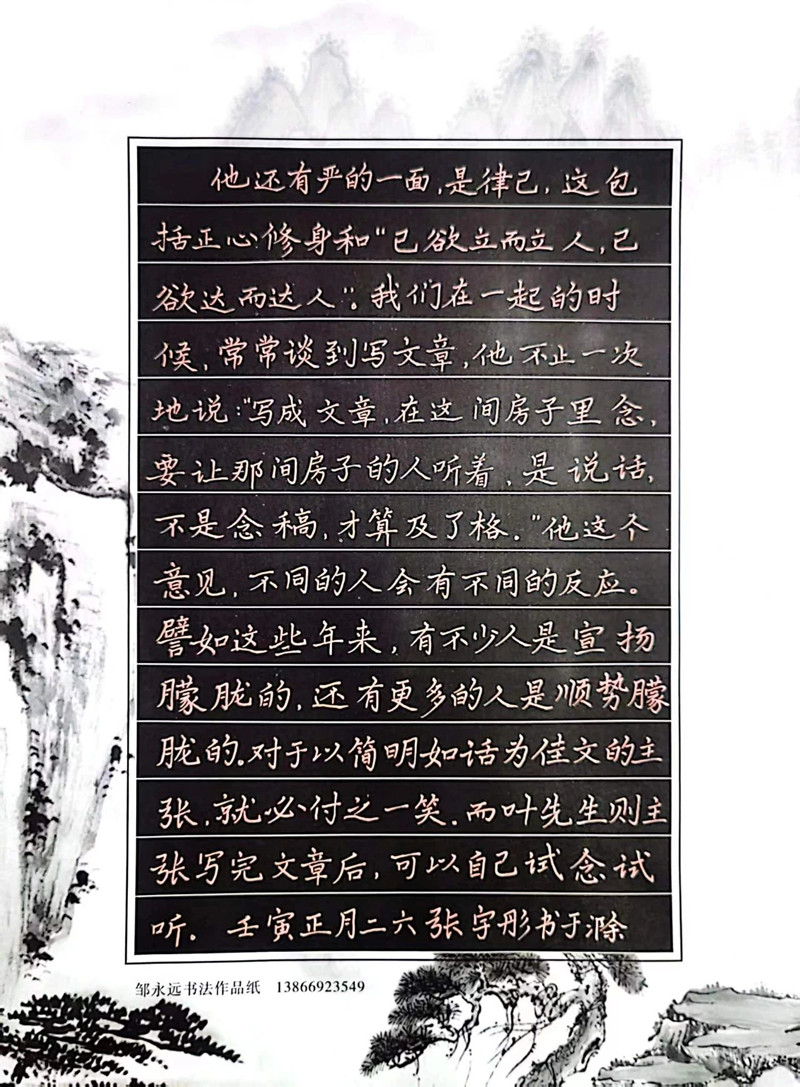 他还有严的一面,是律己,这包
括正心修身和"己欲立而立人,己
欲达而达人"。我们在一起的时
候,常常谈到写文章,他不止一次
地说:"写成文章,在这间房子里念,
要让那间房子的人听着,是说话,
不是念稿,才算及了格。"他这个
意见,不同的人会有不同的反应。
譬如这些年来,有不少人是宣扬
朦胧的,还有更多的人是顺势朦
胧的。对于以简明如话为佳文的主
张,就必付之一笑。而叶先生则主
张写完文章后,可以自己试念试
听。 壬寅正月二六张字彤书于滁
邹永远书法作品纸 13866923549